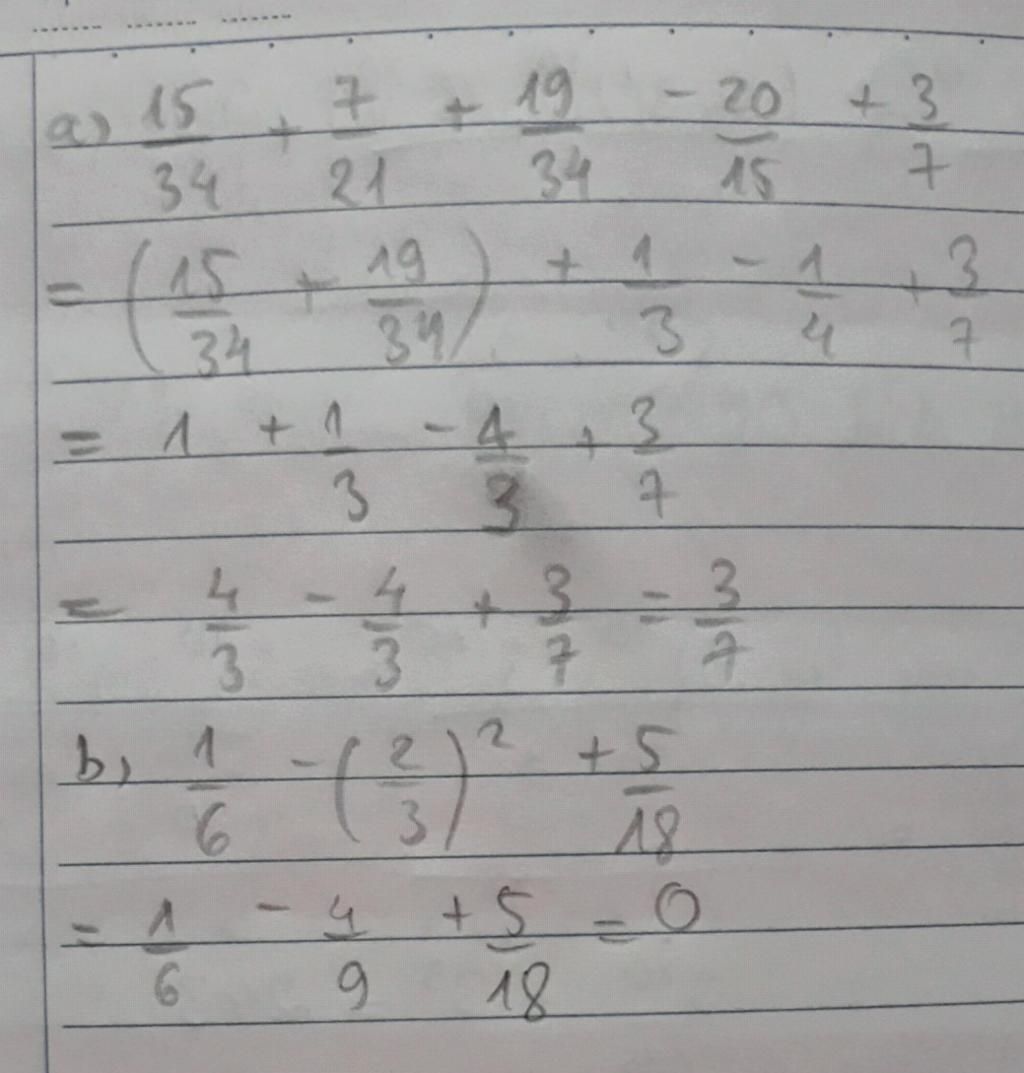 a) 15/34 + 7/21 + 19/34 - 20/15 + 3/7
= (15/34 + 19/34) + 1/3 - 1/4 + 3/7
= 1 + 1/3 - 4/3 + 3/7
= 4/3 - 4/3 + 3/7 = 3/7
b) 1/6 - (2/3)² + 5/18
= 1/6 - 4/9 + 5/18 = 0